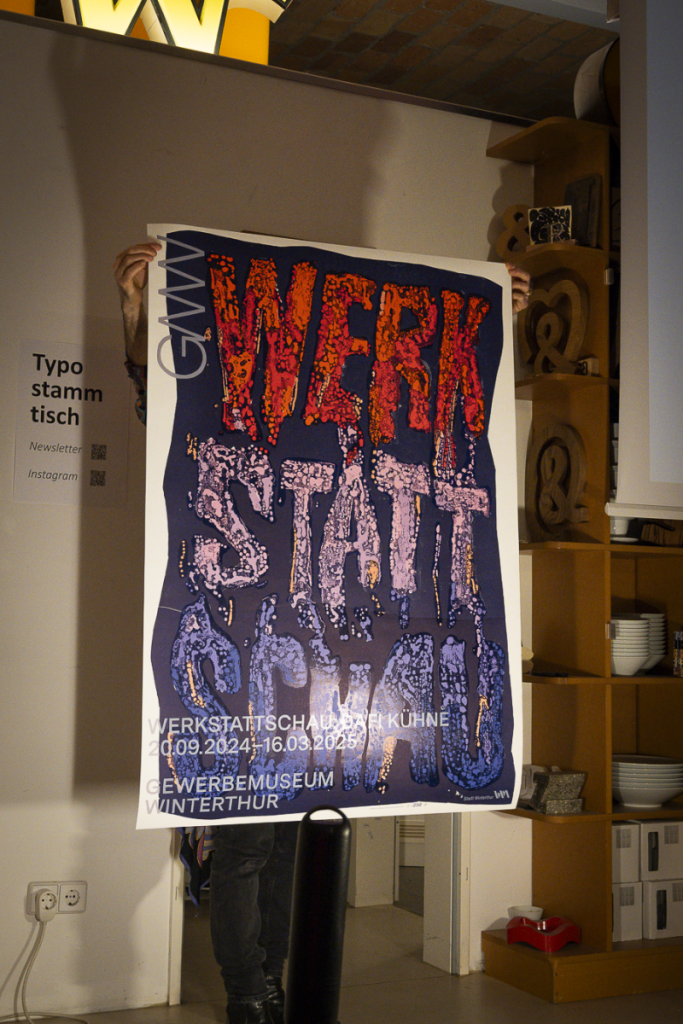 W
GMW
WERK
STATT
SCHAU
WERKSTATTSCHAU: DAFI KÜHNE
20.09.2024–16.03.2025
GEWERBEMUSEUM
WINTERTHUR
Stadt Winterthur
Typo
stamm
tisch
Newsletter
Instagram
&
&